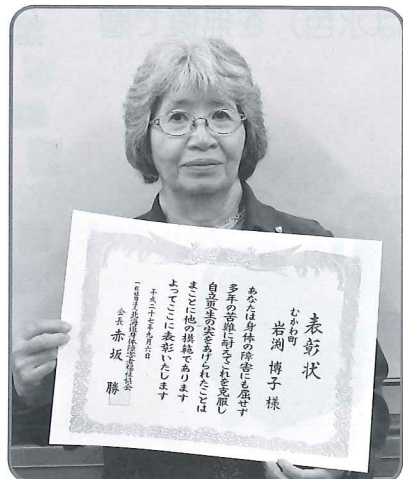 表彰状
むかわ町
岩渕博子様
あなたは身体の障害にも屈せず
多年の苦難に耐えてこれを克服し
自立更生の実をあげられたことは
まことに他の模範であります
よってここに表彰いたします
平成二十七年九月六日
一般社団法人北海道身体障害者福祉協会
会長 赤坂 勝